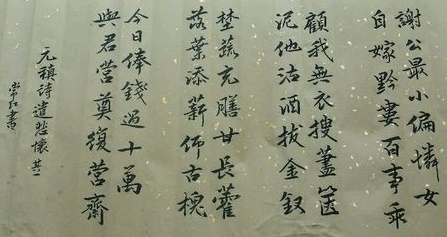 謝公最小偏憐女
自嫁黔婁百事乖
顧我無衣搜藎篋
泥他沽酒拔金釵
埜蔬充膳甘長藿
落葉添薪仰古槐
今日俸錢過十萬
與君營奠復營齋
元稹詩遣悲懷其一